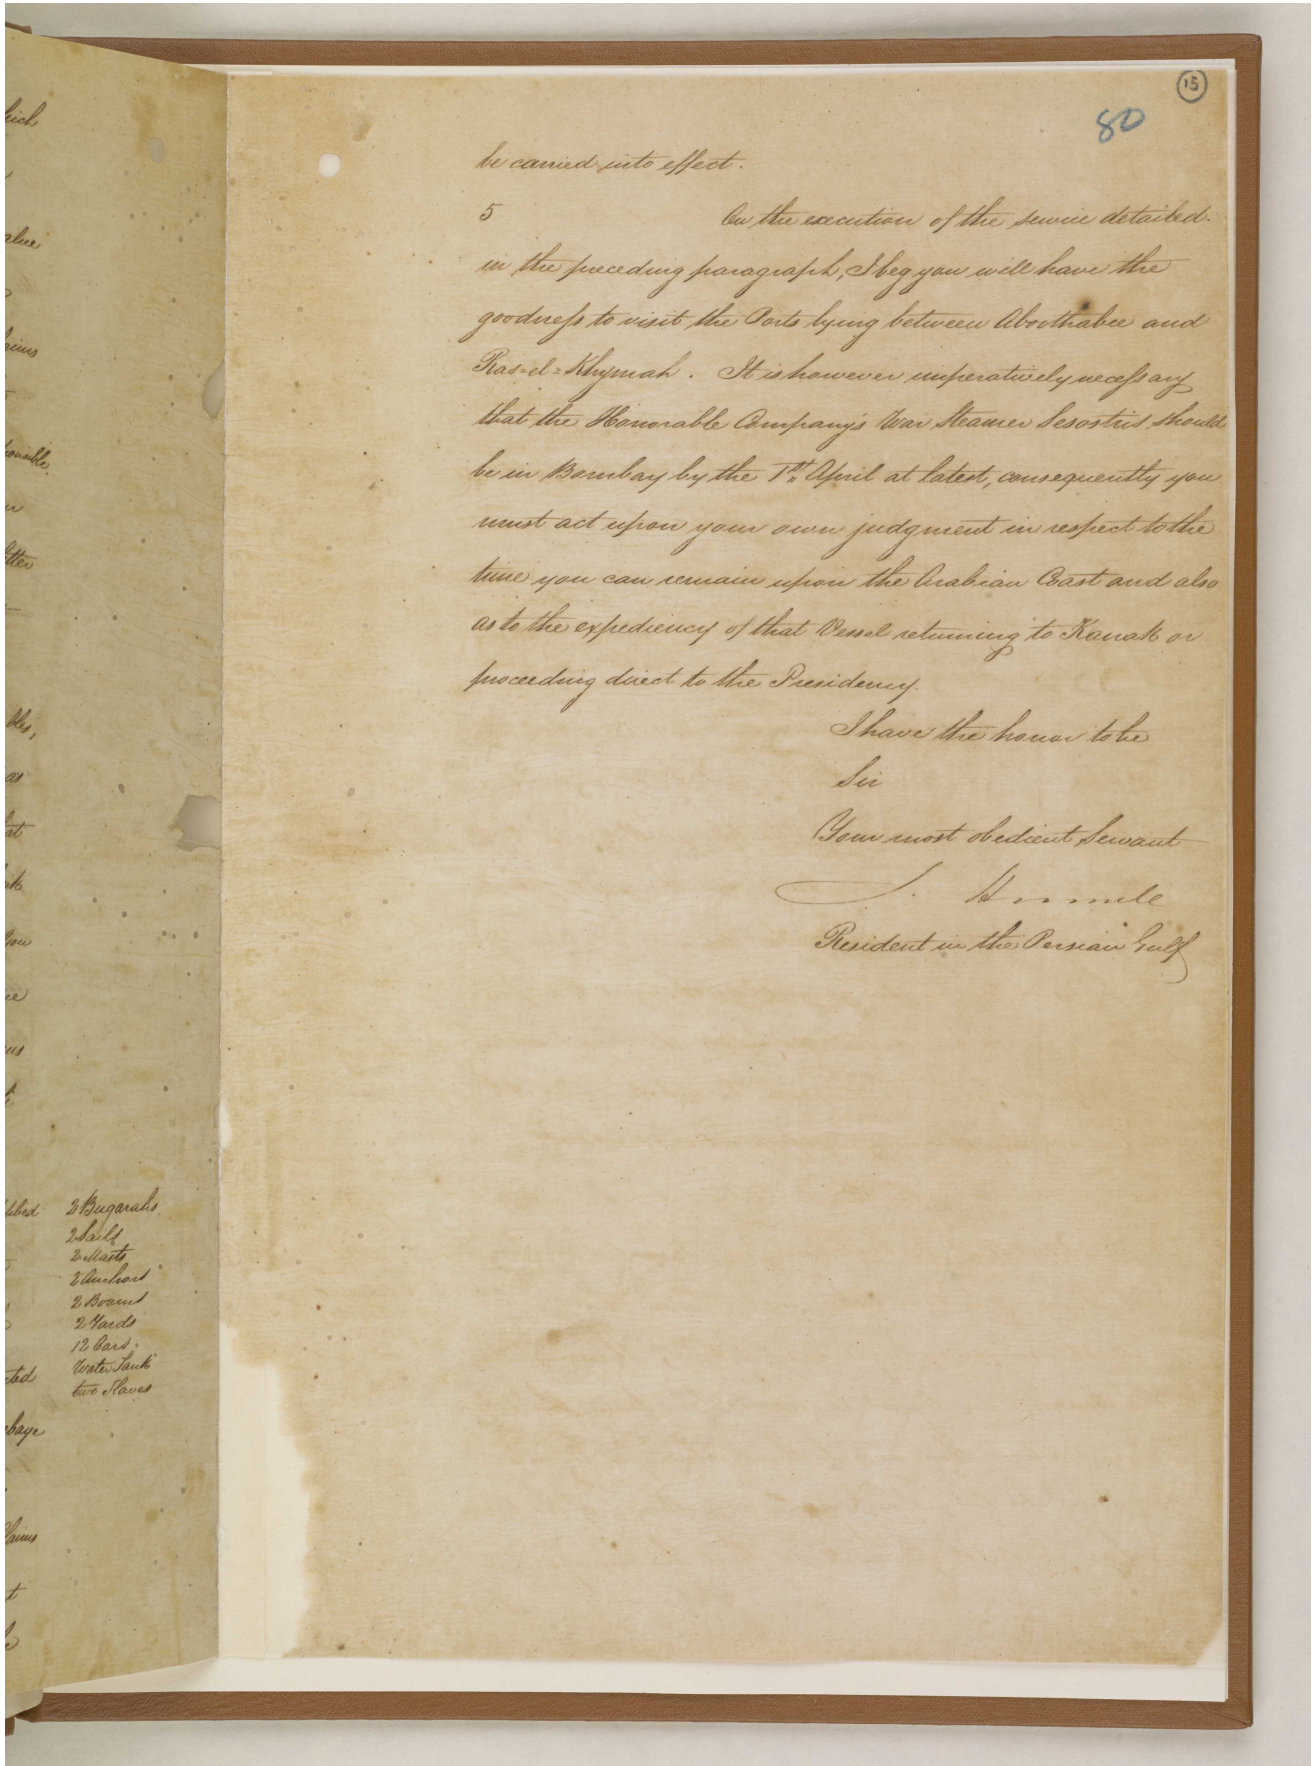 15
80
be carried into effect.
5 On the execution of the service detailed
in the preceding paragraph, I beg you will have the
goodness to visit the Ports lying between Aboothabee and
Ras-el-Khymah. It is however imperatively necessary
that the Honorable Company's War Steamer Sesostris should
be in Bombay by the 1st April at latest, consequently you
must act upon your own judgment in respect to the
time you can remain upon the Arabian Coast and also
as to the expediency of that Vessel returning to Karrak or
proceeding direct to the Presidency.
I have the honor to be
Sir
Your most obedient Servant
S. Hennell
Resident in the Persian Gulf
2 Bugarahs
2 Sails
2 Masts
2 Anchors
2 Booms
2 Yards
12 Oars
Water Tank
two Slaves